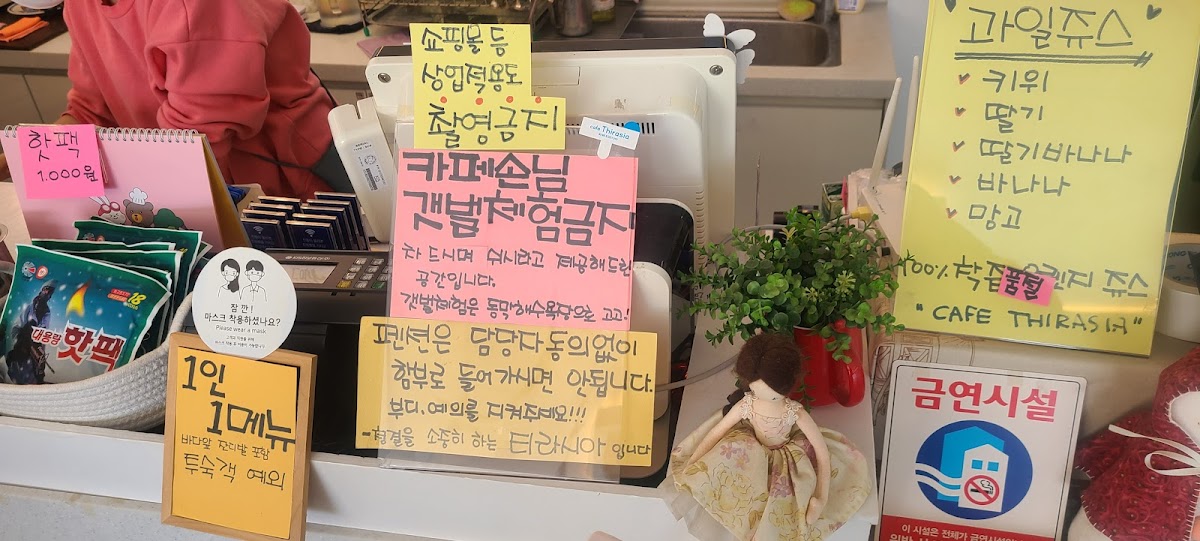 핫팩
1.000원
대용량
핫팩
18
잠 깐 !
마스크 착용하셨나요?
Please wear a mask
1인
1메뉴
바다앞 잔디밭 포함
투숙객 예외
쇼핑몰 등
상업적용도
촬영금지
cafe Thirasia
카페손님
갯벌체험금지
차 드시며 쉬시라고 제공해드린
공간입니다.
갯벌체험은 동막해수욕장으로 고고!
펜션은 담당자동의없이
함부로 들어가시면 안됩니다.
부디. 예의를 지켜주세요!!!
-청결을 소중히 하는 티라시아 입니다
과일쥬스
키위
딸기
딸기바나나
바나나
망고
100% 착즙 쥬스
품절
"CAFE THIRASIA"
금연시설
이 시설은 전체가 금연시설